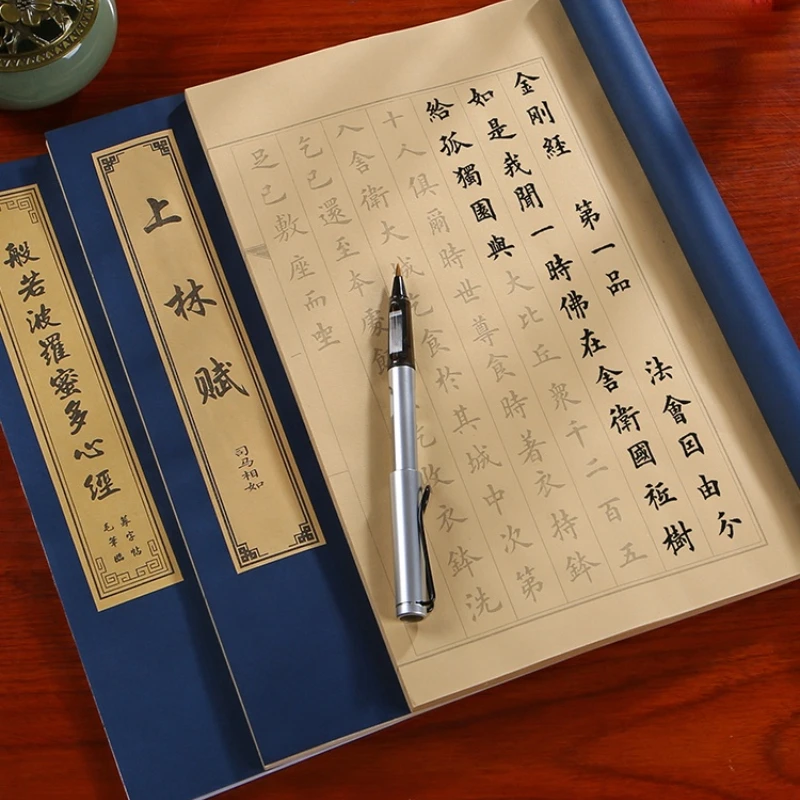 金剛經 第一品 法會囙由分
如是我聞一時佛在舍衛國祗樹
給孤獨園與大比丘衆千二百五
十人俱爾時世尊食時著衣持鉢
入舍衛大城乞食於其城中次第
乞已還至本處飯訖收衣鉢洗
足已敷座而坐
上林赋
司马相如
般若波羅蜜多心經
萘字帖
毛筆臨